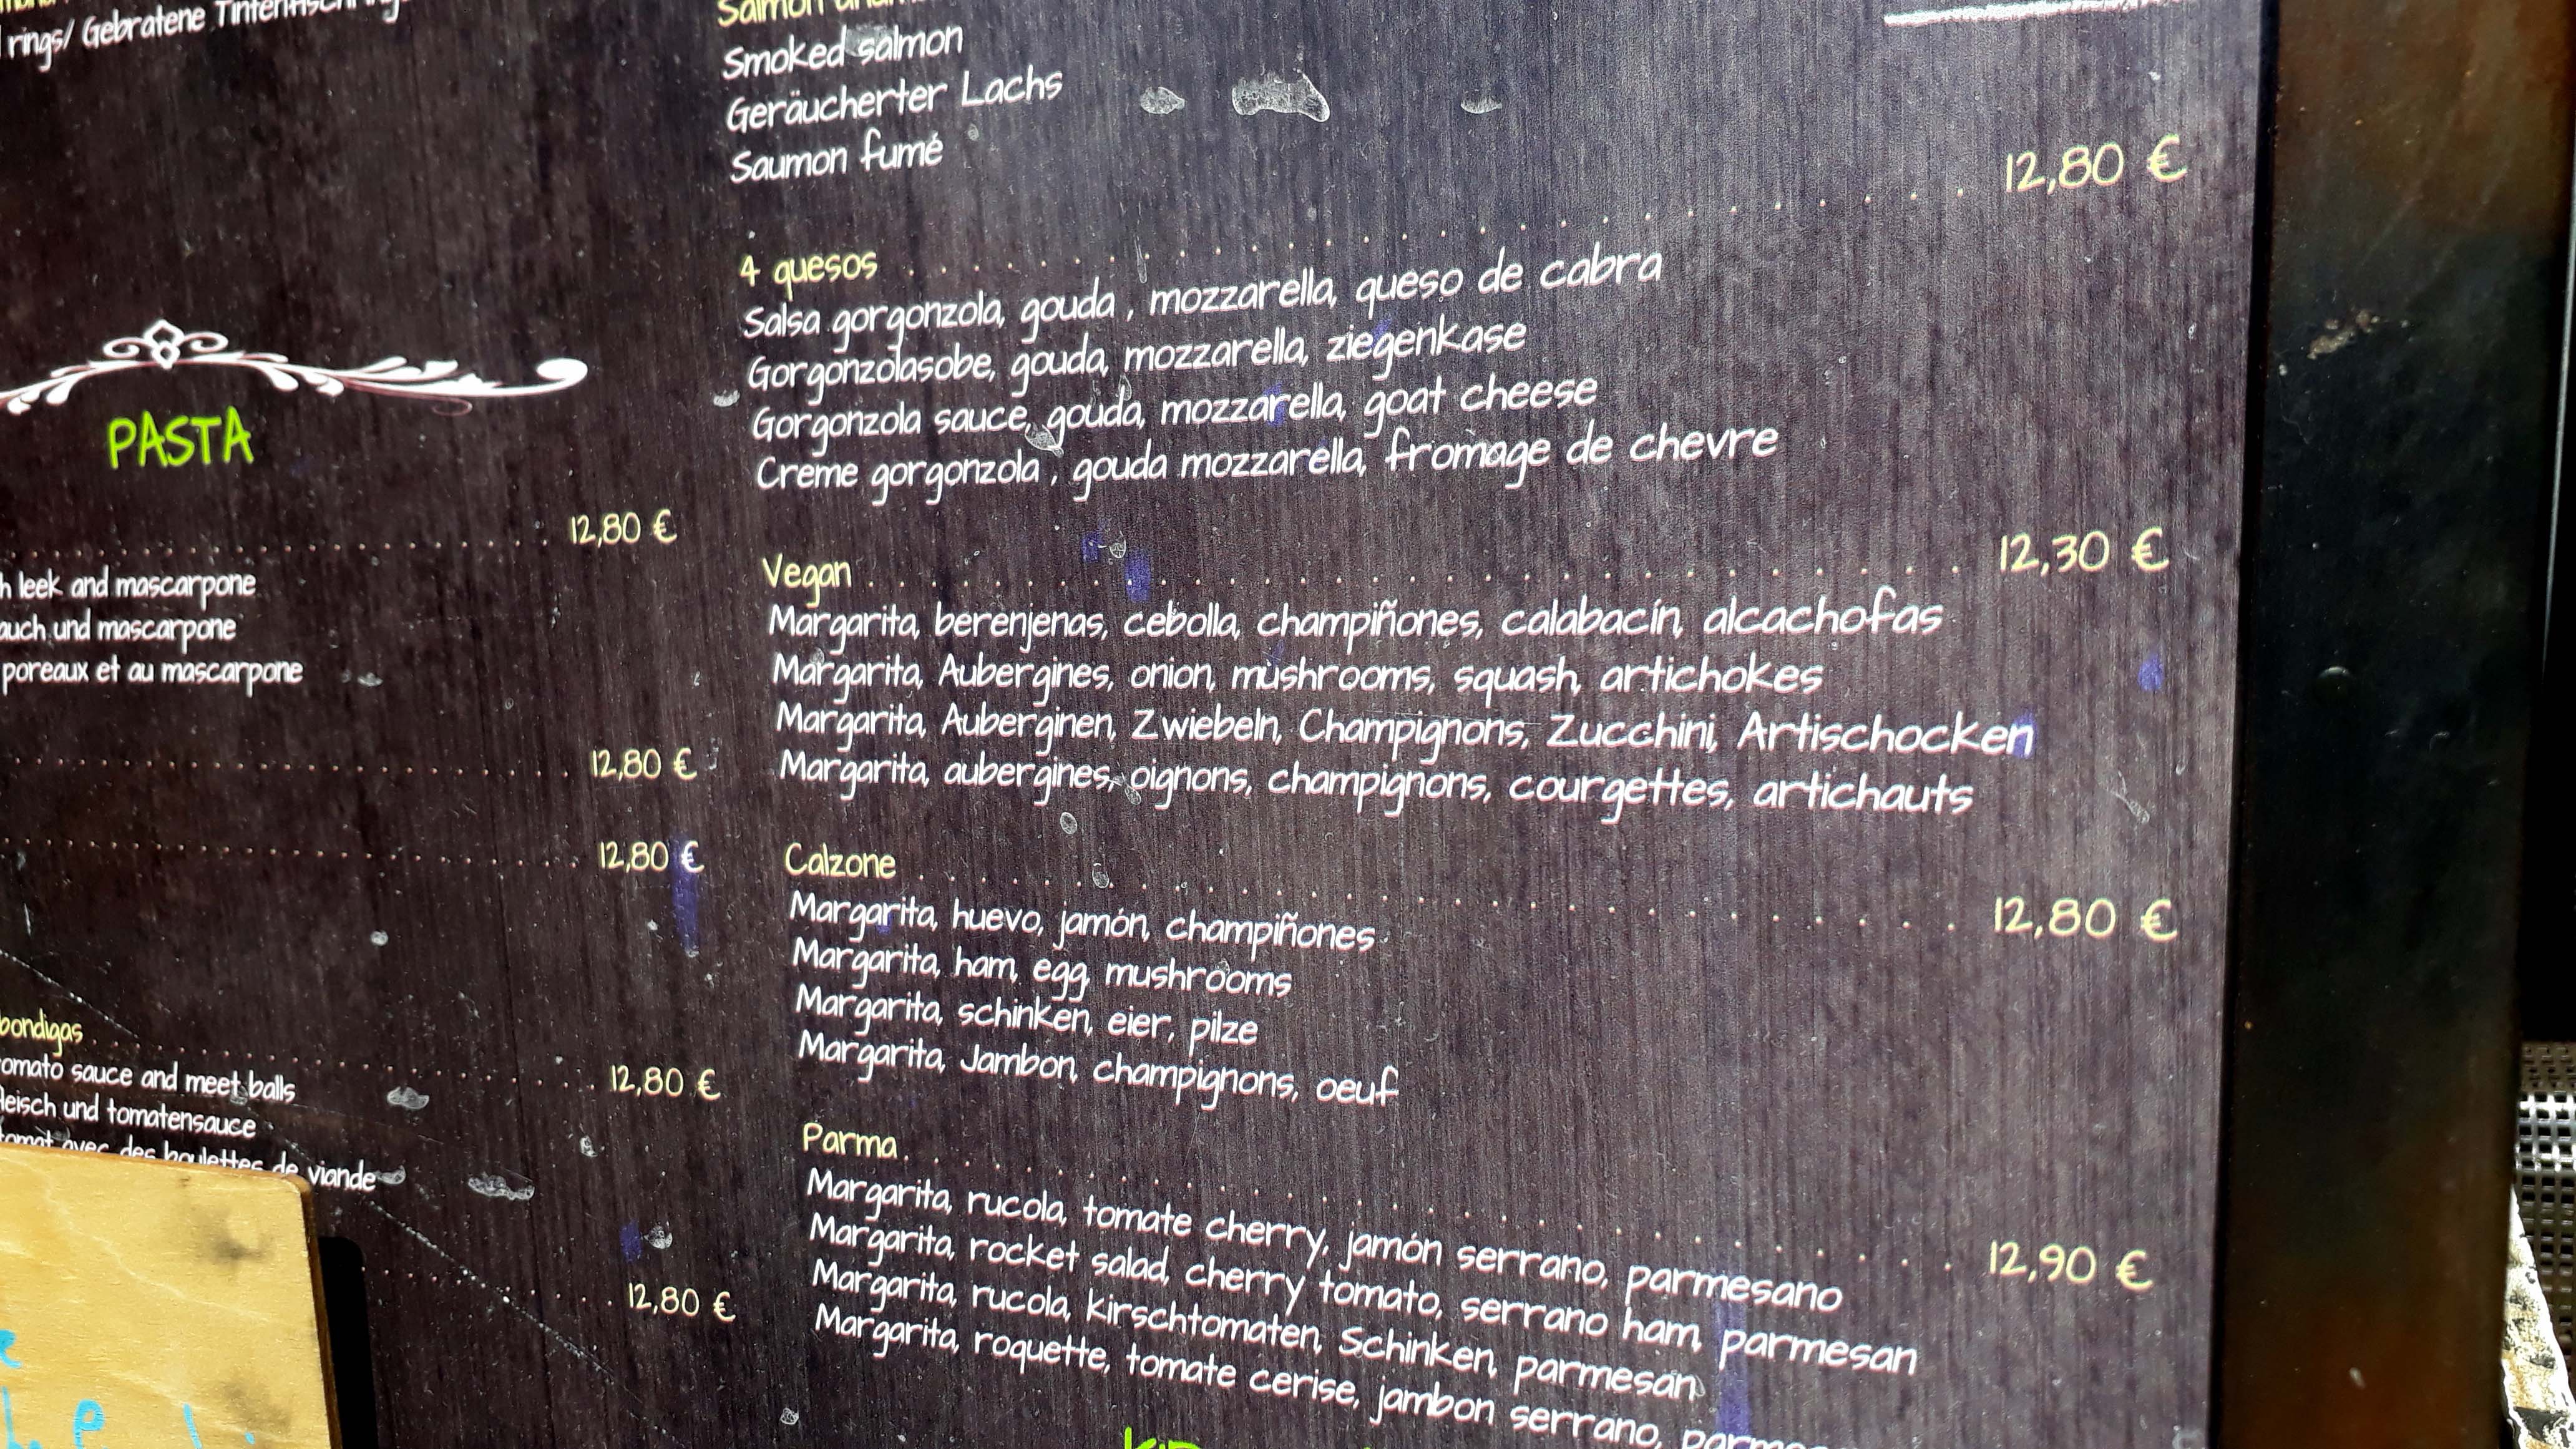 rings/ Gebratene
PASTA
12,80 €
leek and mascarpone
und mascarpone
poreaux et au mascarpone
12,80 €
12,80 €
12,80 €
sauce and meet balls
und tomatensauce
avec des boulettes de viande
12,80 €
Salmon
Smoked salmon
Geräucherter Lachs
Saumon fumé
4 quesos 12,80 €
Salsa gorgonzola, gouda , mozzarella, queso de cabra
Gorgonzolasobe, gouda, mozzarella, ziegenkase
Gorgonzola sauce, gouda, mozzarella, goat cheese
Creme gorgonzola , gouda mozzarella, fromage de chevre
Vegan 12,30 €
Margarita, berenjenas, cebolla, champiñones, calabacín, alcachofas
Margarita, Aubergines, onion, mushrooms, squash, artichokes
Margarita, Auberginen, Zwiebeln, Champignons, Zucchini, Artischocken
Margarita, aubergines, oignons, champignons, courgettes, artichauts
Calzone 12,80 €
Margarita, huevo, jamón, champiñones
Margarita, ham, egg, mushrooms
Margarita, schinken, eier, pilze
Margarita, Jambon, champignons, oeuf
Parma 12,90 €
Margarita, rucola, tomate cherry, jamón serrano, parmesano
Margarita, rocket salad, cherry tomato, serrano ham, parmesan
Margarita, rucola, kirschtomaten, Schinken, parmesan
Margarita, roquette, tomate cerise, jambon serrano,